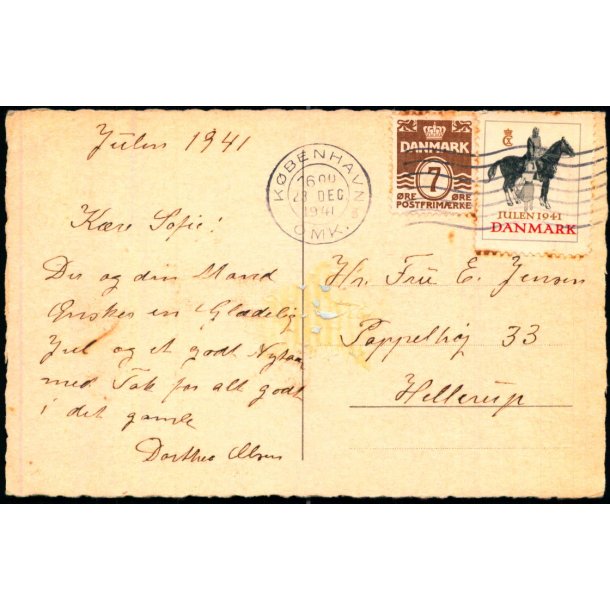 Julen 1941
Kære Sofie!
Du og din Mand
Ønskes en Glædelig
Jul og et godt Nytaar
med Tak for alt godt
i det gamle
Dorthea Olsen
KØBENHAVN
16 00
23 DEC
1941
OMK.
DANMARK
7
ØRE ØRE
POSTFRIMÆRKE
JULEN 1941
DANMARK
Hr. Fru E. Jensen
Pappelhøj 33
Hellerup